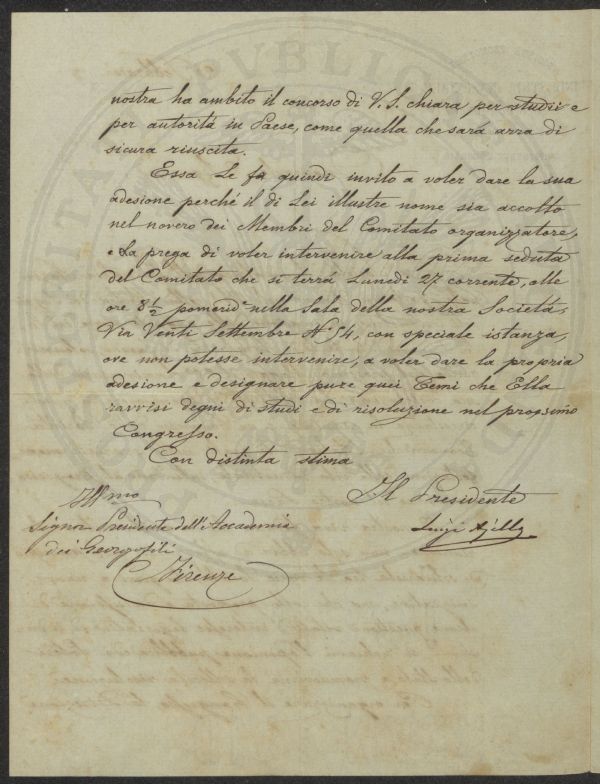 nostra ha ambito il concorso di V. S. chiara per studii e
per autorità in Paese, come quella che sarà arra di
sicura riuscita.
Essa Le fa quindi invito a voler dare la sua
adesione perchè il di Lei illustre nome sia accolto
nel novero dei Membri del Comitato organizzatore,
e La prega di voler intervenire alla prima seduta
del Comitato che si terrá Lunedi 27 corrente, alle
ore 8 1/2 pomerid.e nella Sala della nostra Societá,
Via Venti Settembre N.o 54, con speciale istanza,
ove non potesse intervenire, a voler dare la propria
adesione e designare pure quei Temi che Ella
ravvisi degni di studi e di risoluzione nel prossimo
Congresso.
Con distinta stima
Il Presidente
Luigi
Ill.mo
Signor Presidente dell'Accademia
dei Georgofili
Firenze